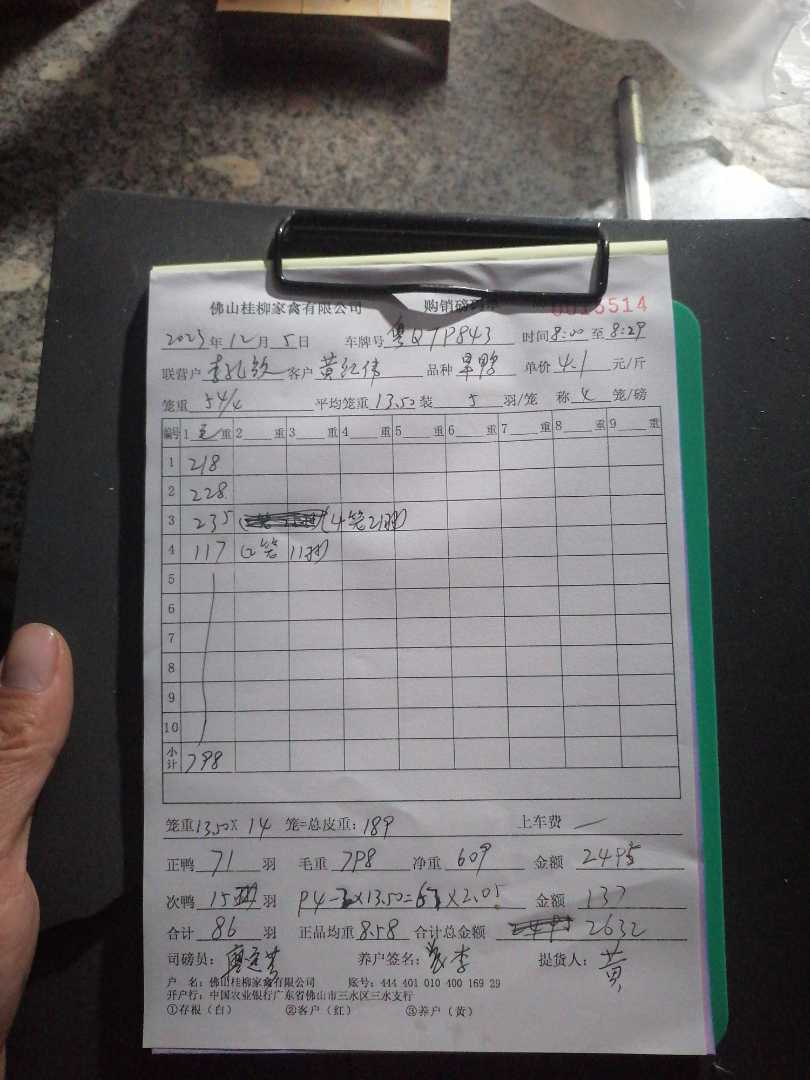 佛山桂柳家禽有限公司 购销磅码单 0013514
2023年12月5日 车牌号 粤Q7P843 时间8:00至8:29
联营户 客户 黄红伟 品种 旱鸭 单价4.1元/斤
笼重 54/4 平均笼重13.50装 5 羽/笼 称 4 笼/磅
编号 1毛重 2 重 3 重 4 重 5 重 6 重 7 重 8 重 9 重
1 218
2 228
3 235 (4笼21羽)
4 117 (2笼 11羽)
5
6
7
8
9
10
小计 798
笼重13.50X 14 笼=总皮重:189 上车费 —
正鸭 71 羽 毛重 798 净重 609 金额 2495
次鸭 15 羽 94 X13.50= X2.05 金额 137
合计 86 羽 正品均重8.58 合计总金额 2632
司磅员: 养户签名: 李 提货人: 黄
户 名: 佛山桂柳家禽有限公司 账号: 444 401 010 400 169 29
开户行: 中国农业银行广东省佛山市三水区三水支行
①存根(白) ②客户(红) ③养户(黄)